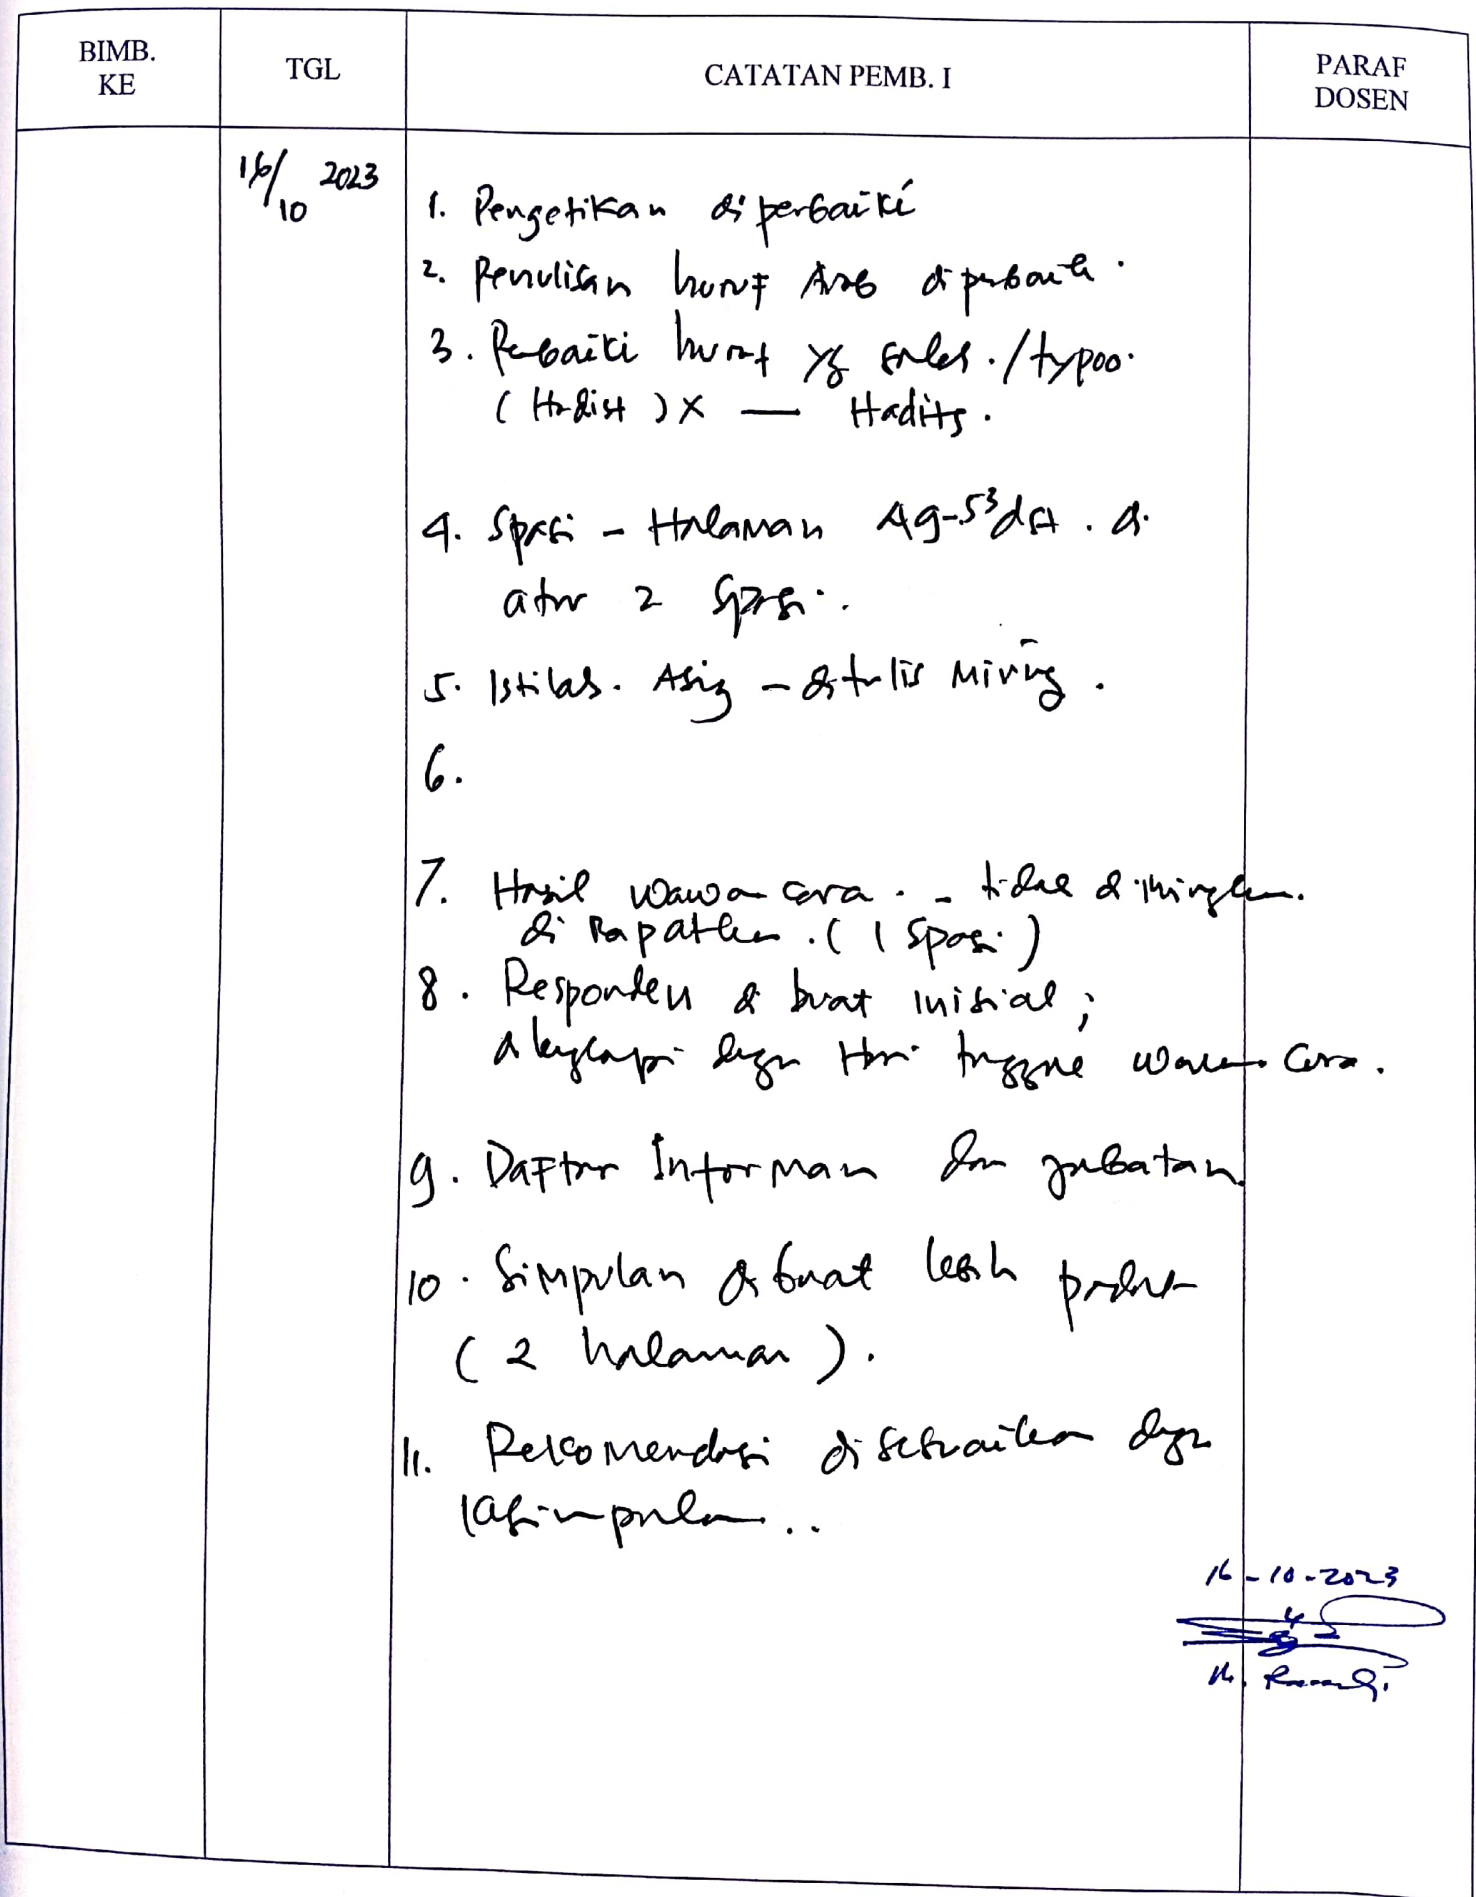 BIMB.
KE
TGL
CATATAN PEMB. I
PARAF
DOSEN
16/10 2023
1. Pengetikan diperbaiki
2. Penulisan huruf Arab diperbaiki.
3. Perbaiki huruf yg salah. / typoo.
(Hadist) X — Hadits.
4. Spasi - Halaman 49-53 dst. di
atur 2 spasi.
5. Istilah. Asing - ditulis Miring.
6.
7. Hasil wawancara. - tidak dimiringkan.
di Rapatkan. (1 Spasi)
8. Responden di buat inisial;
dilengkapi dgn Hari tanggal wawancara.
9. Daftar Informan dan jabatan
10. Simpulan dibuat lebih padat
(2 halaman).
11. Rekomendasi disesuaikan dgn
kesimpulan..
16-10-2023